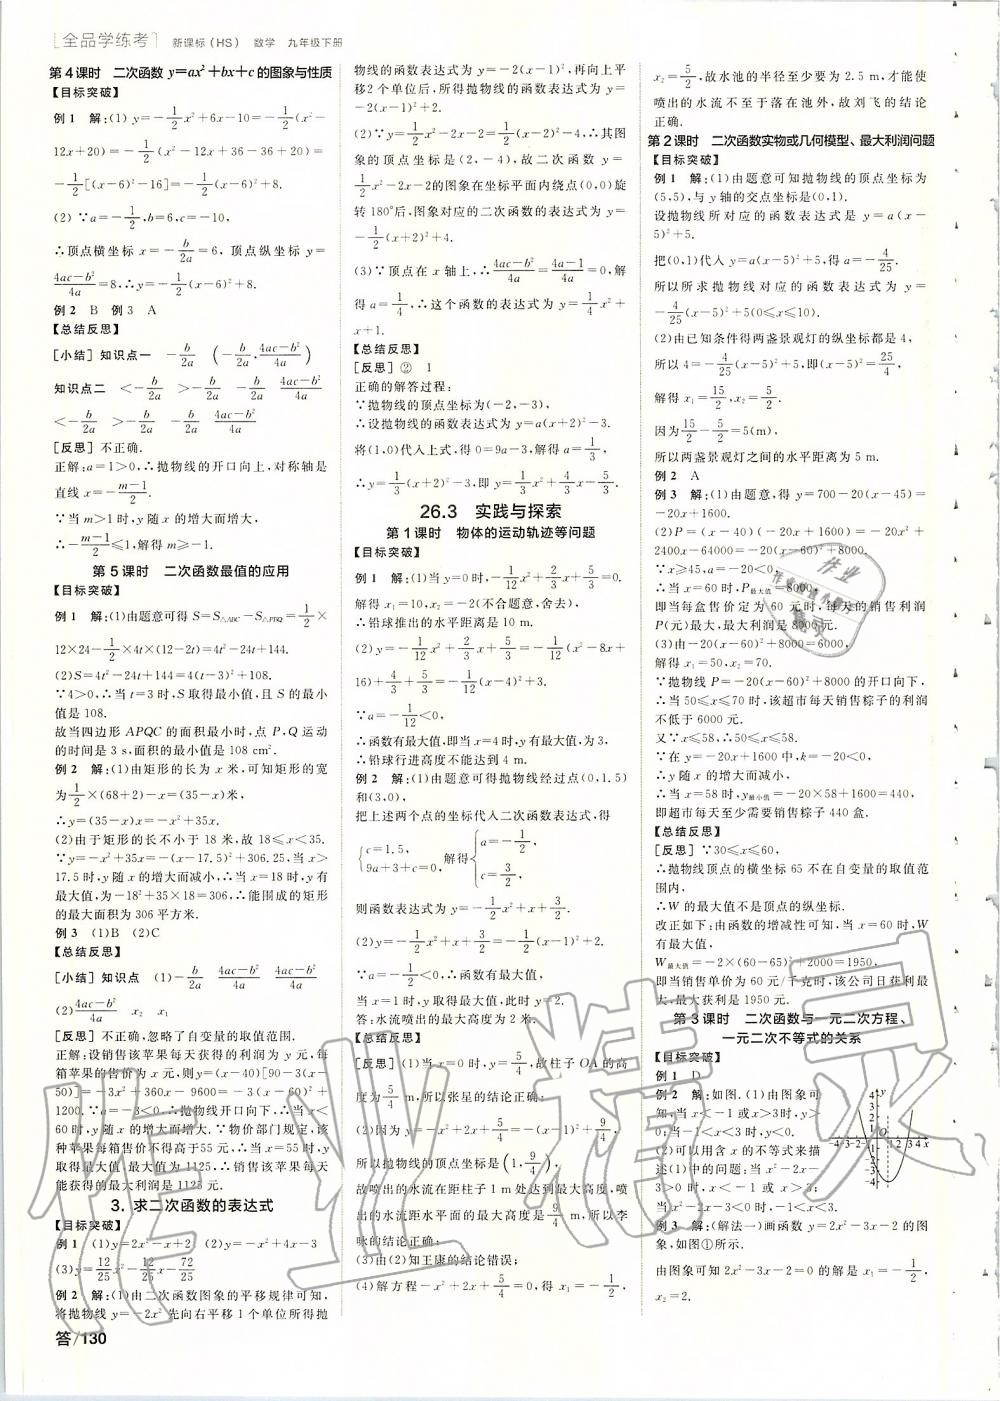 全品学练考 新课标(HS) 数学 九年级下册
第4课时 二次函数 y=ax²+bx+c 的图象与性质
【目标突破】
例1 解:(1) y=-1/2x²+6x-10=-1/2(x²-
12x+20)=-1/2(x²-12x+36-36+20)=
-1/2[(x-6)²-16]=-1/2(x-6)²+8.
(2) ∵a=-1/2,b=6,c=-10,
∴顶点横坐标 x=-b/2a=6, 顶点纵坐标 y=
(4ac-b²)/4a=8,∴y=-1/2(x-6)²+8.
例2 B 例3 A
【总结反思】
[小结] 知识点一 -b/2a (-b/2a, (4ac-b²)/4a)
知识点二 <-b/2a >-b/2a -b/2a (4ac-b²)/4a
<-b/2a >-b/2a -b/2a (4ac-b²)/4a
[反思] 不正确.
正解:a=1>0,∴抛物线的开口向上,对称轴是
直线 x=-(m-1)/2.
∵当 m>1 时,y 随 x 的增大而增大,
∴-(m-1)/2≤1,解得 m≥-1.
第5课时 二次函数最值的应用
【目标突破】
例1 解:(1)由题意可得 S=S△ABC-S△PBQ=1/2×
12×24-1/2×4t×(12-2t)=4t²-24t+144.
(2)S=4t²-24t+144=4(t-3)²+108.
∵4>0,∴当 t=3 时,S 取得最小值,且 S 的最小
值是 108.
故当四边形 APQC 的面积最小时,点 P,Q 运动
的时间是 3 s,面积的最小值是 108 cm².
例2 解:(1)由矩形的长为 x 米,可知矩形的宽
为1/2×(68+2)-x=(35-x)米,
∴y=(35-x)x=-x²+35x.
(2)由于矩形的长不小于 18 米,故 18≤x<35.
∵y=-x²+35x=-(x-17.5)²+306.25,当 x>
17.5 时,y 随 x 的增大而减小,∴当 x=18 时,y 有
最大值,为-18²+35×18=306,∴能围成的矩形
的最大面积为 306 平方米.
例3 (1)B (2)C
【总结反思】
[小结] 知识点 (1)-b/2a (4ac-b²)/4a (4ac-b²)/4a
(2)(4ac-b²)/4a x₂ x₁
[反思] 不正确,忽略了自变量的取值范围.
正解:设销售该苹果每天获得的利润为 y 元,每
箱苹果的售价为 x 元,则 y=(x-40)[90-3(x-
50)]=-3x²+360x-9600=-3(x-60)²+
1200.∵a=-3<0,∴抛物线开口向下,∴当 x<
60 时,y 随 x 的增大而增大.∵物价部门规定,该
种苹果每箱售价不得高于55元,∴当 x=55 时,y
取得最大值,最大值为1125.∴销售该苹果每天
获得的最大利润是1125元.
3. 求二次函数的表达式
【目标突破】
例1 (1)y=2x²-x+2 (2)y=-x²+4x-3
(3)y=12/25x²-12/25x-72/25
例2 解:(1)由二次函数图象的平移规律可知,
将抛物线 y=-2x² 先向右平移 1 个单位所得抛
答/130
物线的函数表达式为 y=-2(x-1)²,再向上平
移2个单位后,所得抛物线的函数表达式为 y=
-2(x-1)²+2.
(2)∵y=1/2x²-2x-2=1/2(x-2)²-4,∴其图
象的顶点坐标是(2,-4),故二次函数 y=
1/2x²-2x-2的图象在坐标平面内绕点(0,0)旋
转 180°后,图象对应的二次函数的表达式为 y=
-1/2(x+2)²+4.
(3)∵顶点在 x 轴上,∴(4ac-b²)/4a=(4a-1)/4a=0,解
得 a=1/4,∴这个函数的表达式为 y=1/4x²+
x+1.
【总结反思】
[反思] ② 1
正确的解答过程:
∵抛物线的顶点坐标为(-2,-3),
∴设抛物线的函数表达式为 y=a(x+2)²-3.
将(1,0)代入上式,得 0=9a-3,解得 a=1/3,
∴y=1/3(x+2)²-3,即 y=1/3x²+4/3x-5/3.
26.3 实践与探索
第1课时 物体的运动轨迹等问题
【目标突破】
例1 解:(1)当 y=0 时,-1/12x²+2/3x+5/3=0.
解得 x₁=10,x₂=-2(不合题意,舍去),
∴铅球推出的水平距离是 10 m.
(2)y=-1/12x²+2/3x+5/3=-1/12(x²-8x+
16)+4/3+5/3=-1/12(x-4)²+3.
∵a=-1/12<0,
∴函数有最大值,即当 x=4时,y有最大值,为3,
∴铅球行进高度不能达到 4 m.
例2 解:(1)由题意可得抛物线经过点(0,1.5)
和(3,0),
把上述两个点的坐标代入二次函数表达式,得
{c=1.5, 9a+3+c=0, 解得{a=-1/2, c=3/2,
则函数表达式为 y=-1/2x²+x+3/2.
(2)y=-1/2x²+x+3/2=-1/2(x-1)²+2.
∵a=-1/2<0,∴抛物线有最大值,
当 x=1 时,y取得最大值,此时 y=2.
答:水流的最大高度为 2 米.
【总结反思】
[反思] (1)当 x=0 时,y=5/4,故柱子 OA 的高
度为5/4 m,所以张星的结论正确;
(2)因为 y=-x²+2x+5/4=-(x-1)²+9/4,
所以抛物线的顶点坐标是(1,9/4),
故喷出的水流在距柱子1 m处达到最大高度,喷
出的水流距水平面的最大高度是9/4 m,所以李
咏的结论正确;
(3)由(2)知王康的结论错误;
(4)解方程-x²+2x+5/4=0,得 x₁=-1/2,
x₂=5/2,故水池的半径至少要为 2.5 m,才能使
喷出的水流不至于落在池外,故刘飞的结论
正确.
第2课时 二次函数实物或几何模型、最大利润问题
【目标突破】
例1 解:(1)由题意可知抛物线的顶点坐标为
(5,5),与 y 轴的交点坐标是(0,1).
设抛物线所对应的函数表达式是 y=a(x-
5)²+5.
把(0,1)代入 y=a(x-5)²+5,得 a=-4/25.
所以所求抛物线对应的函数表达式为 y=
-4/25(x-5)²+5(0≤x≤10).
(2)由已知条件得两盏景观灯的纵坐标都是 4,
所以 4=-4/25(x-5)²+5,即(x-5)²=25/4,
解得 x₁=15/2,x₂=5/2.
因为15/2-5/2=5(m),
所以两盏景观灯之间的水平距离为 5 m.
例2 A
例3 解:(1)由题意,得 y=700-20(x-45)=
-20x+1600.
(2)P=(x-40)(-20x+1600)=-20x²+
2400x-64000=-20(x-60)²+8000.
∵x≥45,a=-20<0,
∴当 x=60 时,P最大值=8000.
即当每盒售价定为 60 元时,每天的销售利润
P(元)最大,最大利润是 8000 元.
(3)由-20(x-60)²+8000=6000,
解得 x₁=50,x₂=70.
∵抛物线 P=-20(x-60)²+8000的开口向下,
∴当50≤x≤70 时,该超市每天销售粽子的利润
不低于 6000 元.
又∵x≤58,∴50≤x≤58.
∵在 y=-20x+1600 中,k=-20<0,
∴y 随 x 的增大而减小,
∴当 x=58 时,y最小值=-20×58+1600=440,
即超市每天至少需要销售粽子 440 盒.
【总结反思】
[反思] ∵30≤x≤60,
∴抛物线顶点的横坐标 65 不在自变量的取值范
围内,
∴W 的最大值不是顶点的纵坐标.
改正如下:由函数的增减性可知,当 x=60 时,W
有最大值,
W最大值=-2×(60-65)²+2000=1950,
即当销售单价为 60 元/千克时,该公司日获利最
大,最大获利是 1950 元.
第3课时 二次函数与一元二次方程、
一元二次不等式的关系
【目标突破】
例1 D
例2 解:(1)如图.(1)由图可
知,当 x<-1 或 x>3 时,y>
0;当-1<x<3 时,y<0.
(2)可以用含 x 的不等式来描
述(1)中的问题:当 x²-2x-
3>0 时,x<-1 或 x>3;
当 x²-2x-3<0 时,-1<x<3.
例3 解:(解法一)画函数 y=2x²-3x-2 的图
象,如图①所示.
由图象可知 2x²-3x-2=0 的解是 x₁=-1/2,
x₂=2.
作业精灵